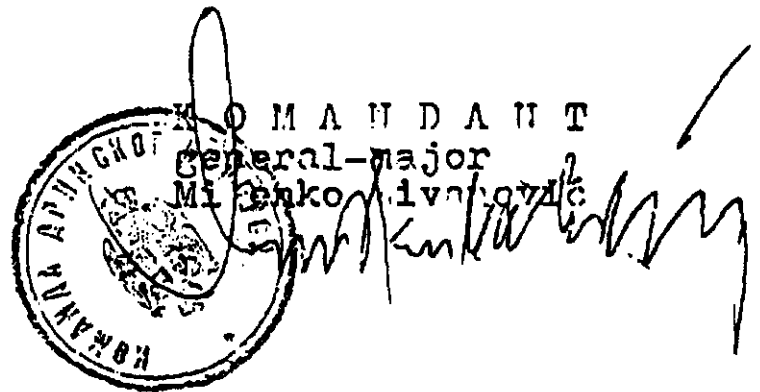 K O M A N D A N T
general-major
Milenko Živanović
КОМАНДА ДРИНСКОГ